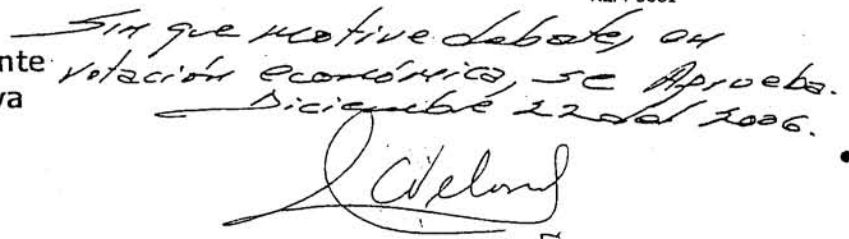 Sin que motive debate, en
nte votación económica, se Aprueba.
va Diciembre 22 del 2006.